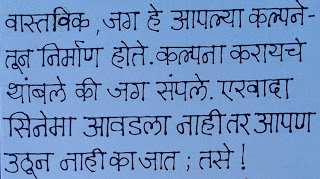 वास्तविक, जग हे आपल्या कल्पने-
तून निर्माण होते. कल्पना करायचे
थांबले की जग संपले. एखादा
सिनेमा आवडला नाही तर आपण
उठून नाही का जात ; तसे !